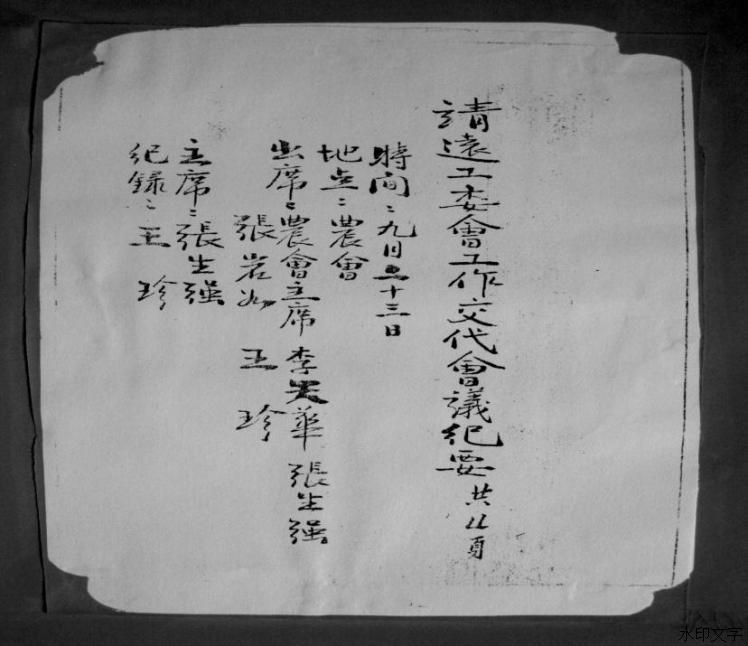 請遠工委會工作交代會議纪要 共 頁
時间：九月二十三日
地点：農會
出席：農會主席 李天華 張生强
張岩如 王珍
主席：張生强
纪録：王珍
水印文字